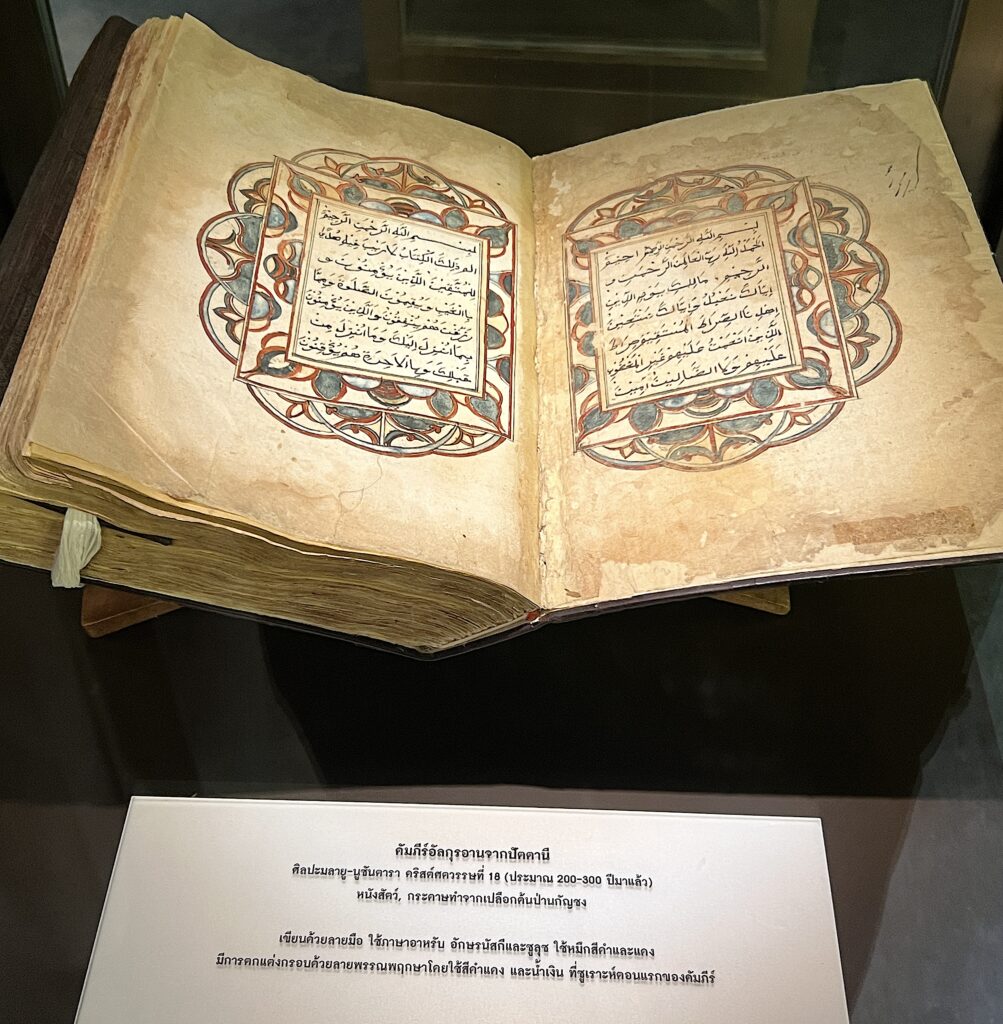 بسم الله الرحمن الرحيم
الحمد لله رب العالمين الرحمن
الرحيم مالك يوم الدين
إياك نعبد وإياك نستعين
اهدنا الصراط المستقيم صراط
الذين أنعمت عليهم غير المغضوب
عليهم ولا الضالين آمين
بسم الله الرحمن الرحيم
الم ذلك الكتاب لا ريب فيه هدى
للمتقين الذين يؤمنون
بالغيب ويقيمون الصلوة ومما
رزقنهم ينفقون والذين يؤمنون
بما انزل اليك وما انزل من
قبلك وبالاخرة هم يوقنون
คัมภีร์อัลกุรอานจากปัตตานี
ศิลปะมลายู-นูซันตารา คริสต์ศตวรรษที่ 18 (ประมาณ 200-300 ปีมาแล้ว)
หนังสัตว์, กระดาษทำจากเปลือกต้นป่านกัญชง
เขียนด้วยลายมือ ใช้ภาษาอาหรับ อักษรนัสกีและซูลุซ ใช้หมึกสีดำและแดง
มีการตกแต่งกรอบด้วยลายพรรณพฤกษาโดยใช้สีดำแดง และน้ำเงิน ที่ซูเราะห์ตอนแรกของคัมภีร์